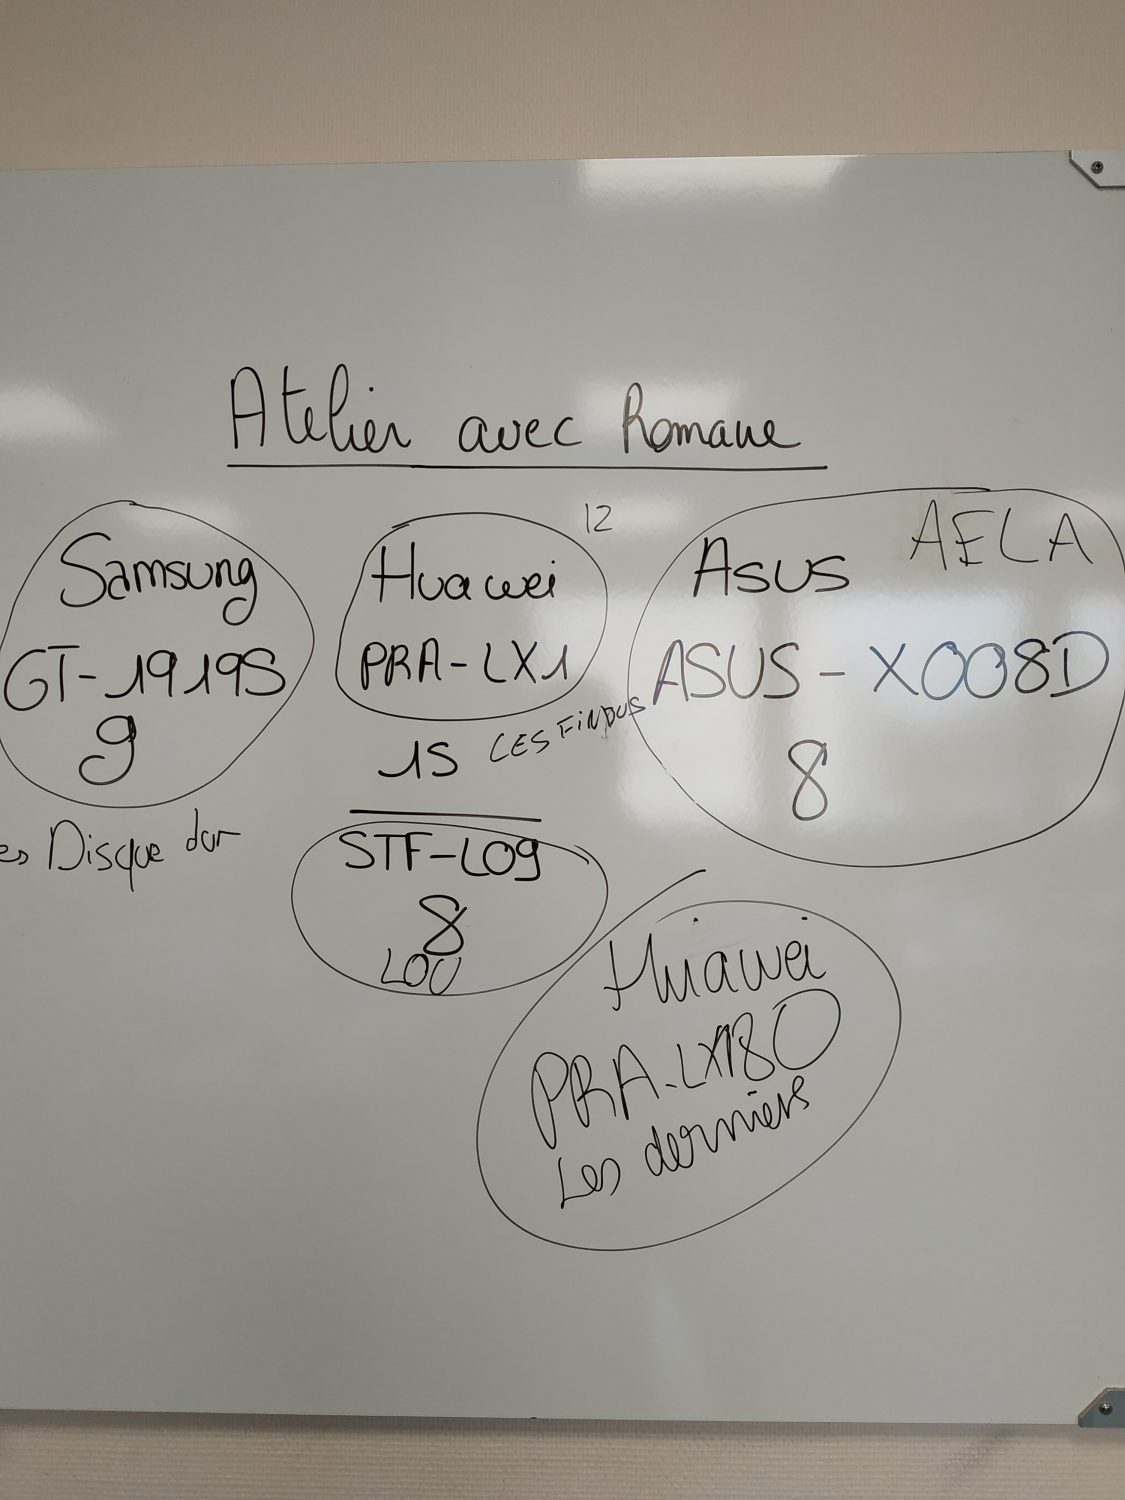 Atelier avec Romane
Samsung
GT-19195
9
es Disque dur
12
Huawei
PRA-LX1
15
CES FiNDUS
STF-L09
8
LOU
AELA
Asus
ASUS-X008D
8
Huiawei
PRA-LX180
Les derniers